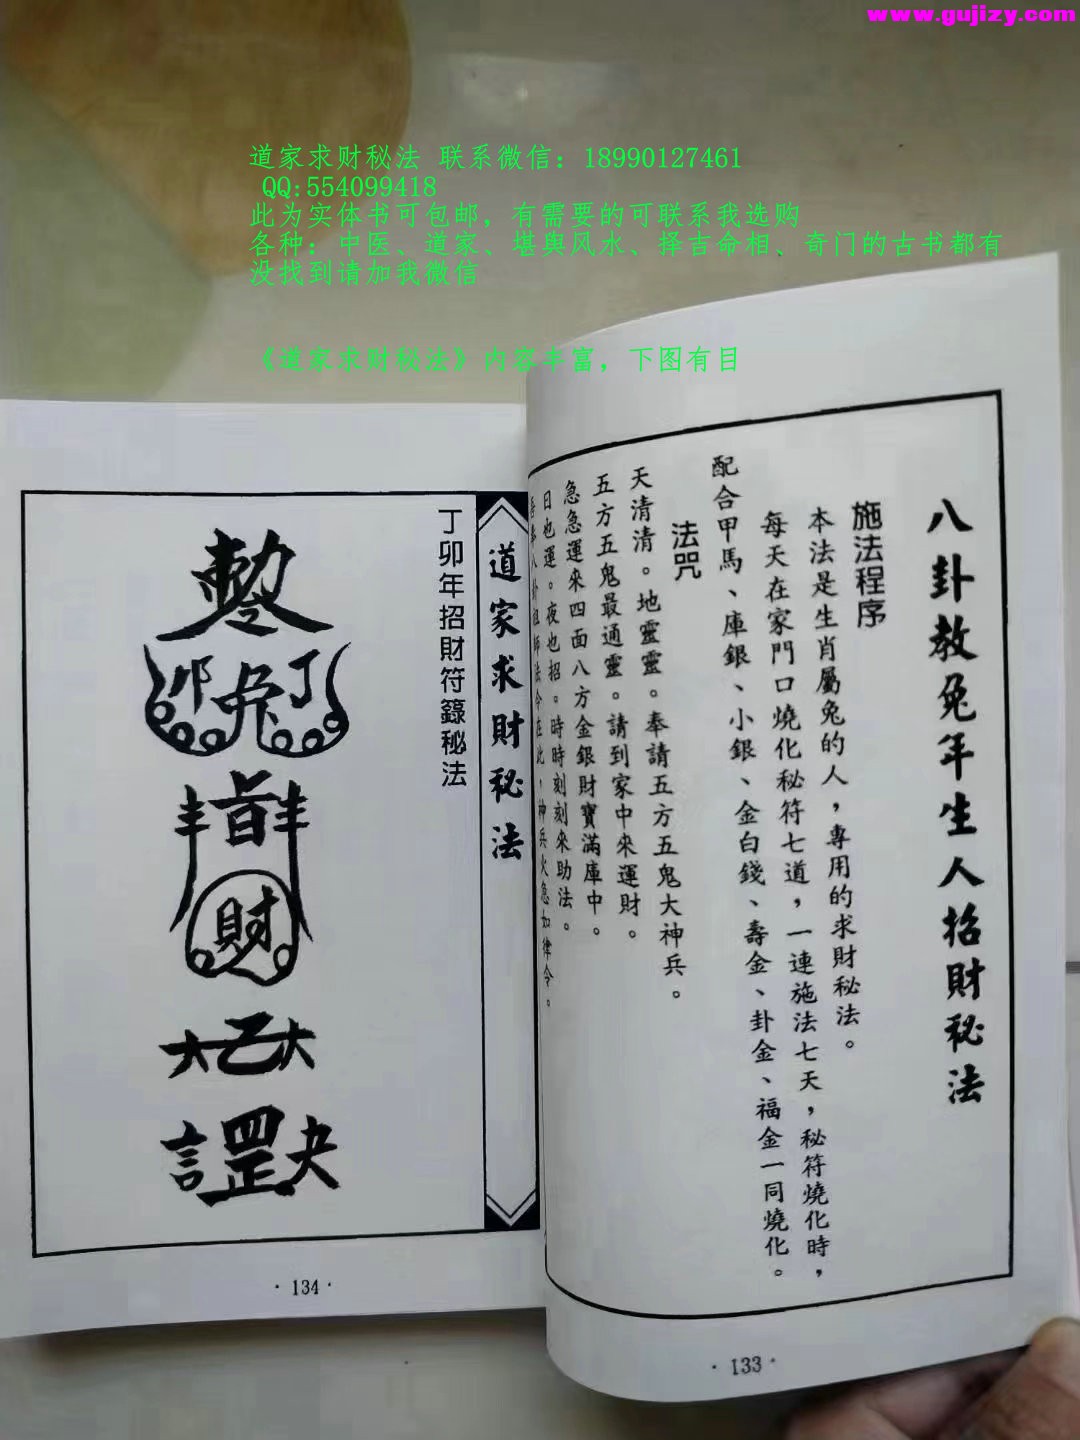 www.gujizy.com
道家求财秘法 联系微信：18990127461
QQ:554099418
此为实体书可包邮，有需要的可联系我选购
各种：中医、道家、堪舆风水、择吉命相、奇门的古书都有
没找到请加我微信
《道家求财秘法》内容丰富，下图有目
八卦教兔年生人招財秘法
施法程序
本法是生肖屬兔的人，專用的求財秘法。
每天在家門口燒化秘符七道，一連施法七天，秘符燒化時，
配合甲馬、庫銀、小銀、金白錢、壽金、卦金、福金一同燒化。
法咒
天清清。地靈靈。奉請五方五鬼大神兵。
五方五鬼最通靈。請到家中來運財。
急急運來四面八方金銀財寶滿庫中。
日也運。夜也招。時時刻刻來助法。
吾奉八卦祖師法令在此，神兵火急如律令。
·133·
道家求財秘法
丁卯年招財符籙秘法
丁兔卯
旨
財
·134·